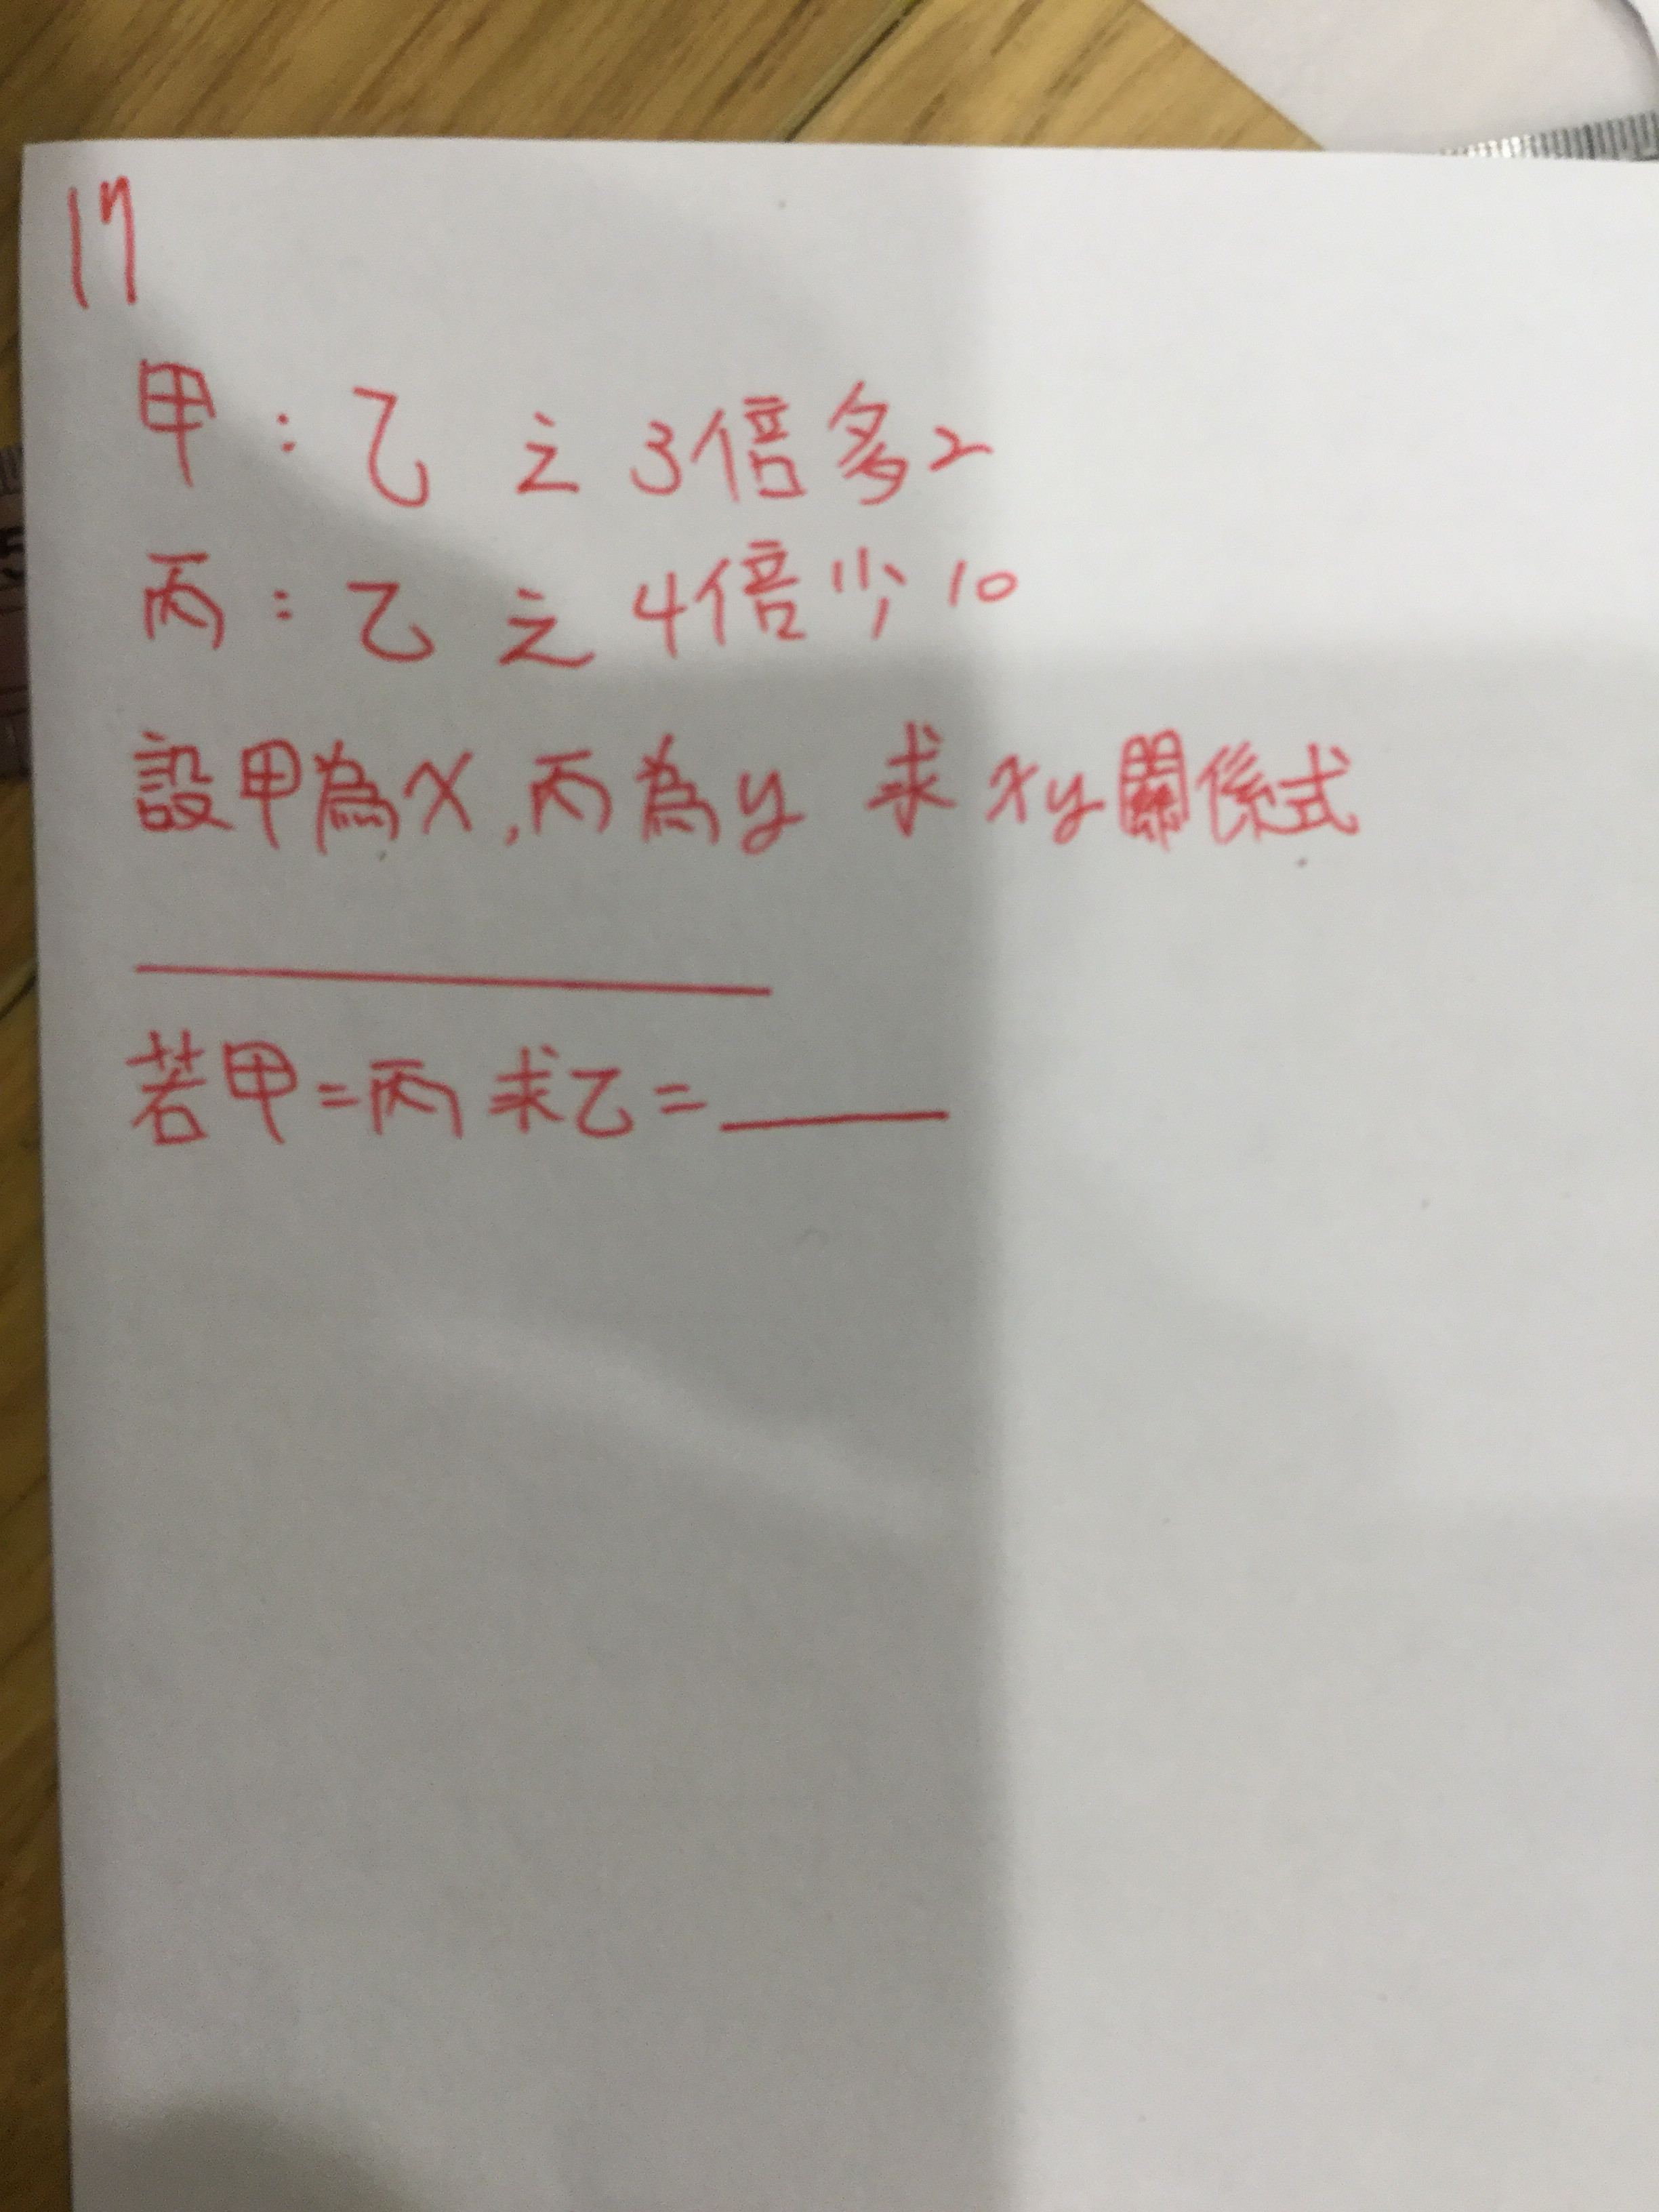 17
甲：乙 之 3倍多2
丙：乙 之 4倍少10
設甲為x,丙為y 求xy關係式
若甲=丙 求乙=